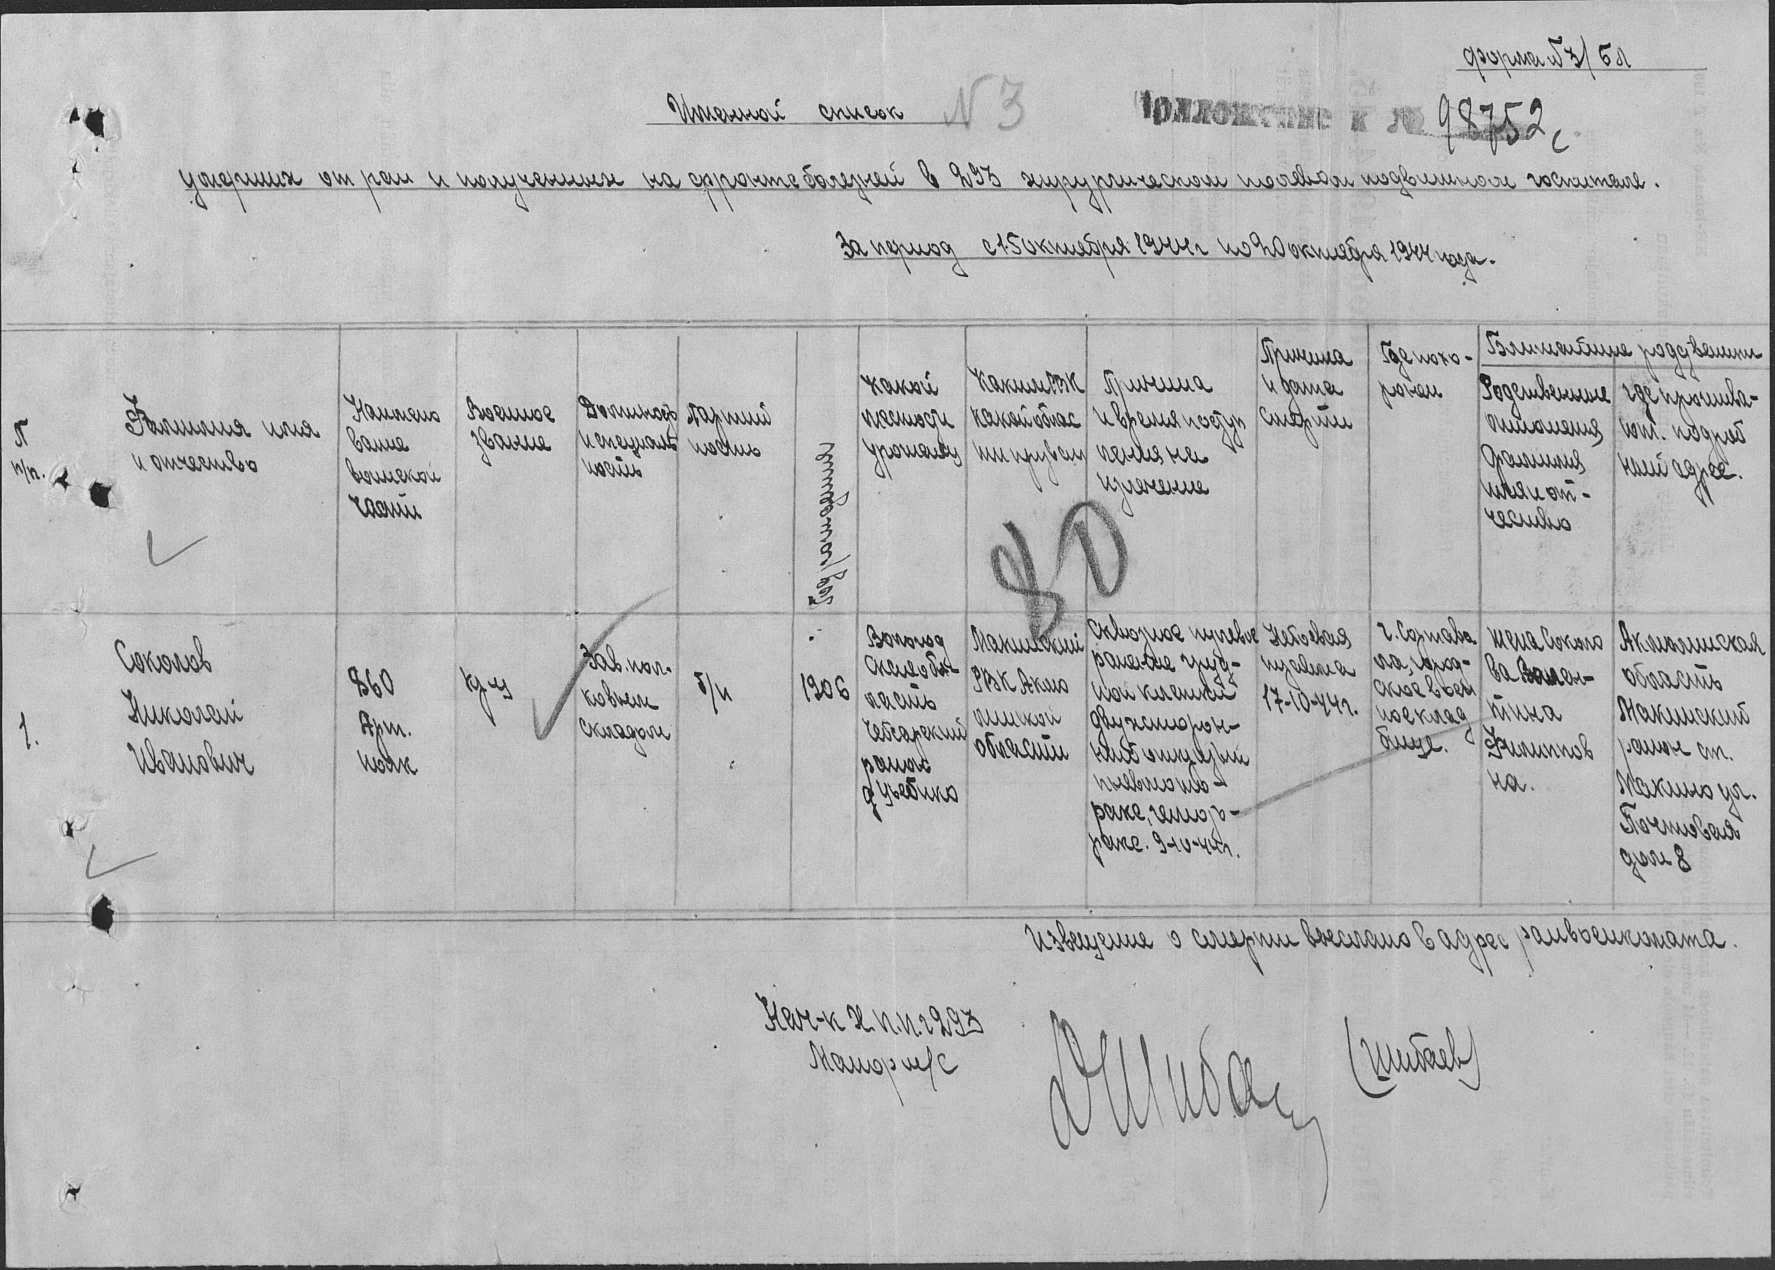 форма № 3/Бл
Именной список № 3
Приложение к № 98752с
умерших от ран и полученных на фронте болезней в 293 хирургическом полевом подвижном госпитале.
За период с 15 октября 1944 г по 20 октября 1944 года.
п/п.
Фамилия имя
и отчество
Наимено
вание
воинской
части
Военное
звание
Должность
и специаль
ность
Партий
ность
Год рождения
Какой
местности
уроженец
Каким РВК
какой облас
ти призван
Причина
и время поступ
ления на
излечение
Причина
и дата
смерти
Где похо-
ронен
Ближайшие родственники
Родственные
отношения
фамилия
имя и от-
чество
где прожива-
ют. подроб
ный адрес.
80
1.
Соколов
Николай
Иванович
860
Арт.
полк
Зав. пол-
ковым
складом
б/п
1906
Вологод
ская об-
ласть
Чебсарский
район
Макинский
РВК Акмо
линской
области
Сквозное пулевое
ранение груд-
ной клетки
двухсторон-
ний открытый
пневмото-
ракс, гемото-
ракс. 9-10-44г.
17-10-44г.
г. Сортава
ла, город-
ское воен
ное клад
бище.
жена Соколо
ва Вален-
тина
Филиппов
на.
Акмолинская
область
Макинский
район ст.
Макинка ул.
Почтовая
дом 8
Извещение о смерти выслано в адрес райвоенкомата.
Нач-к Х.П.П.Г 293
Майор м/с
(Шибаев)